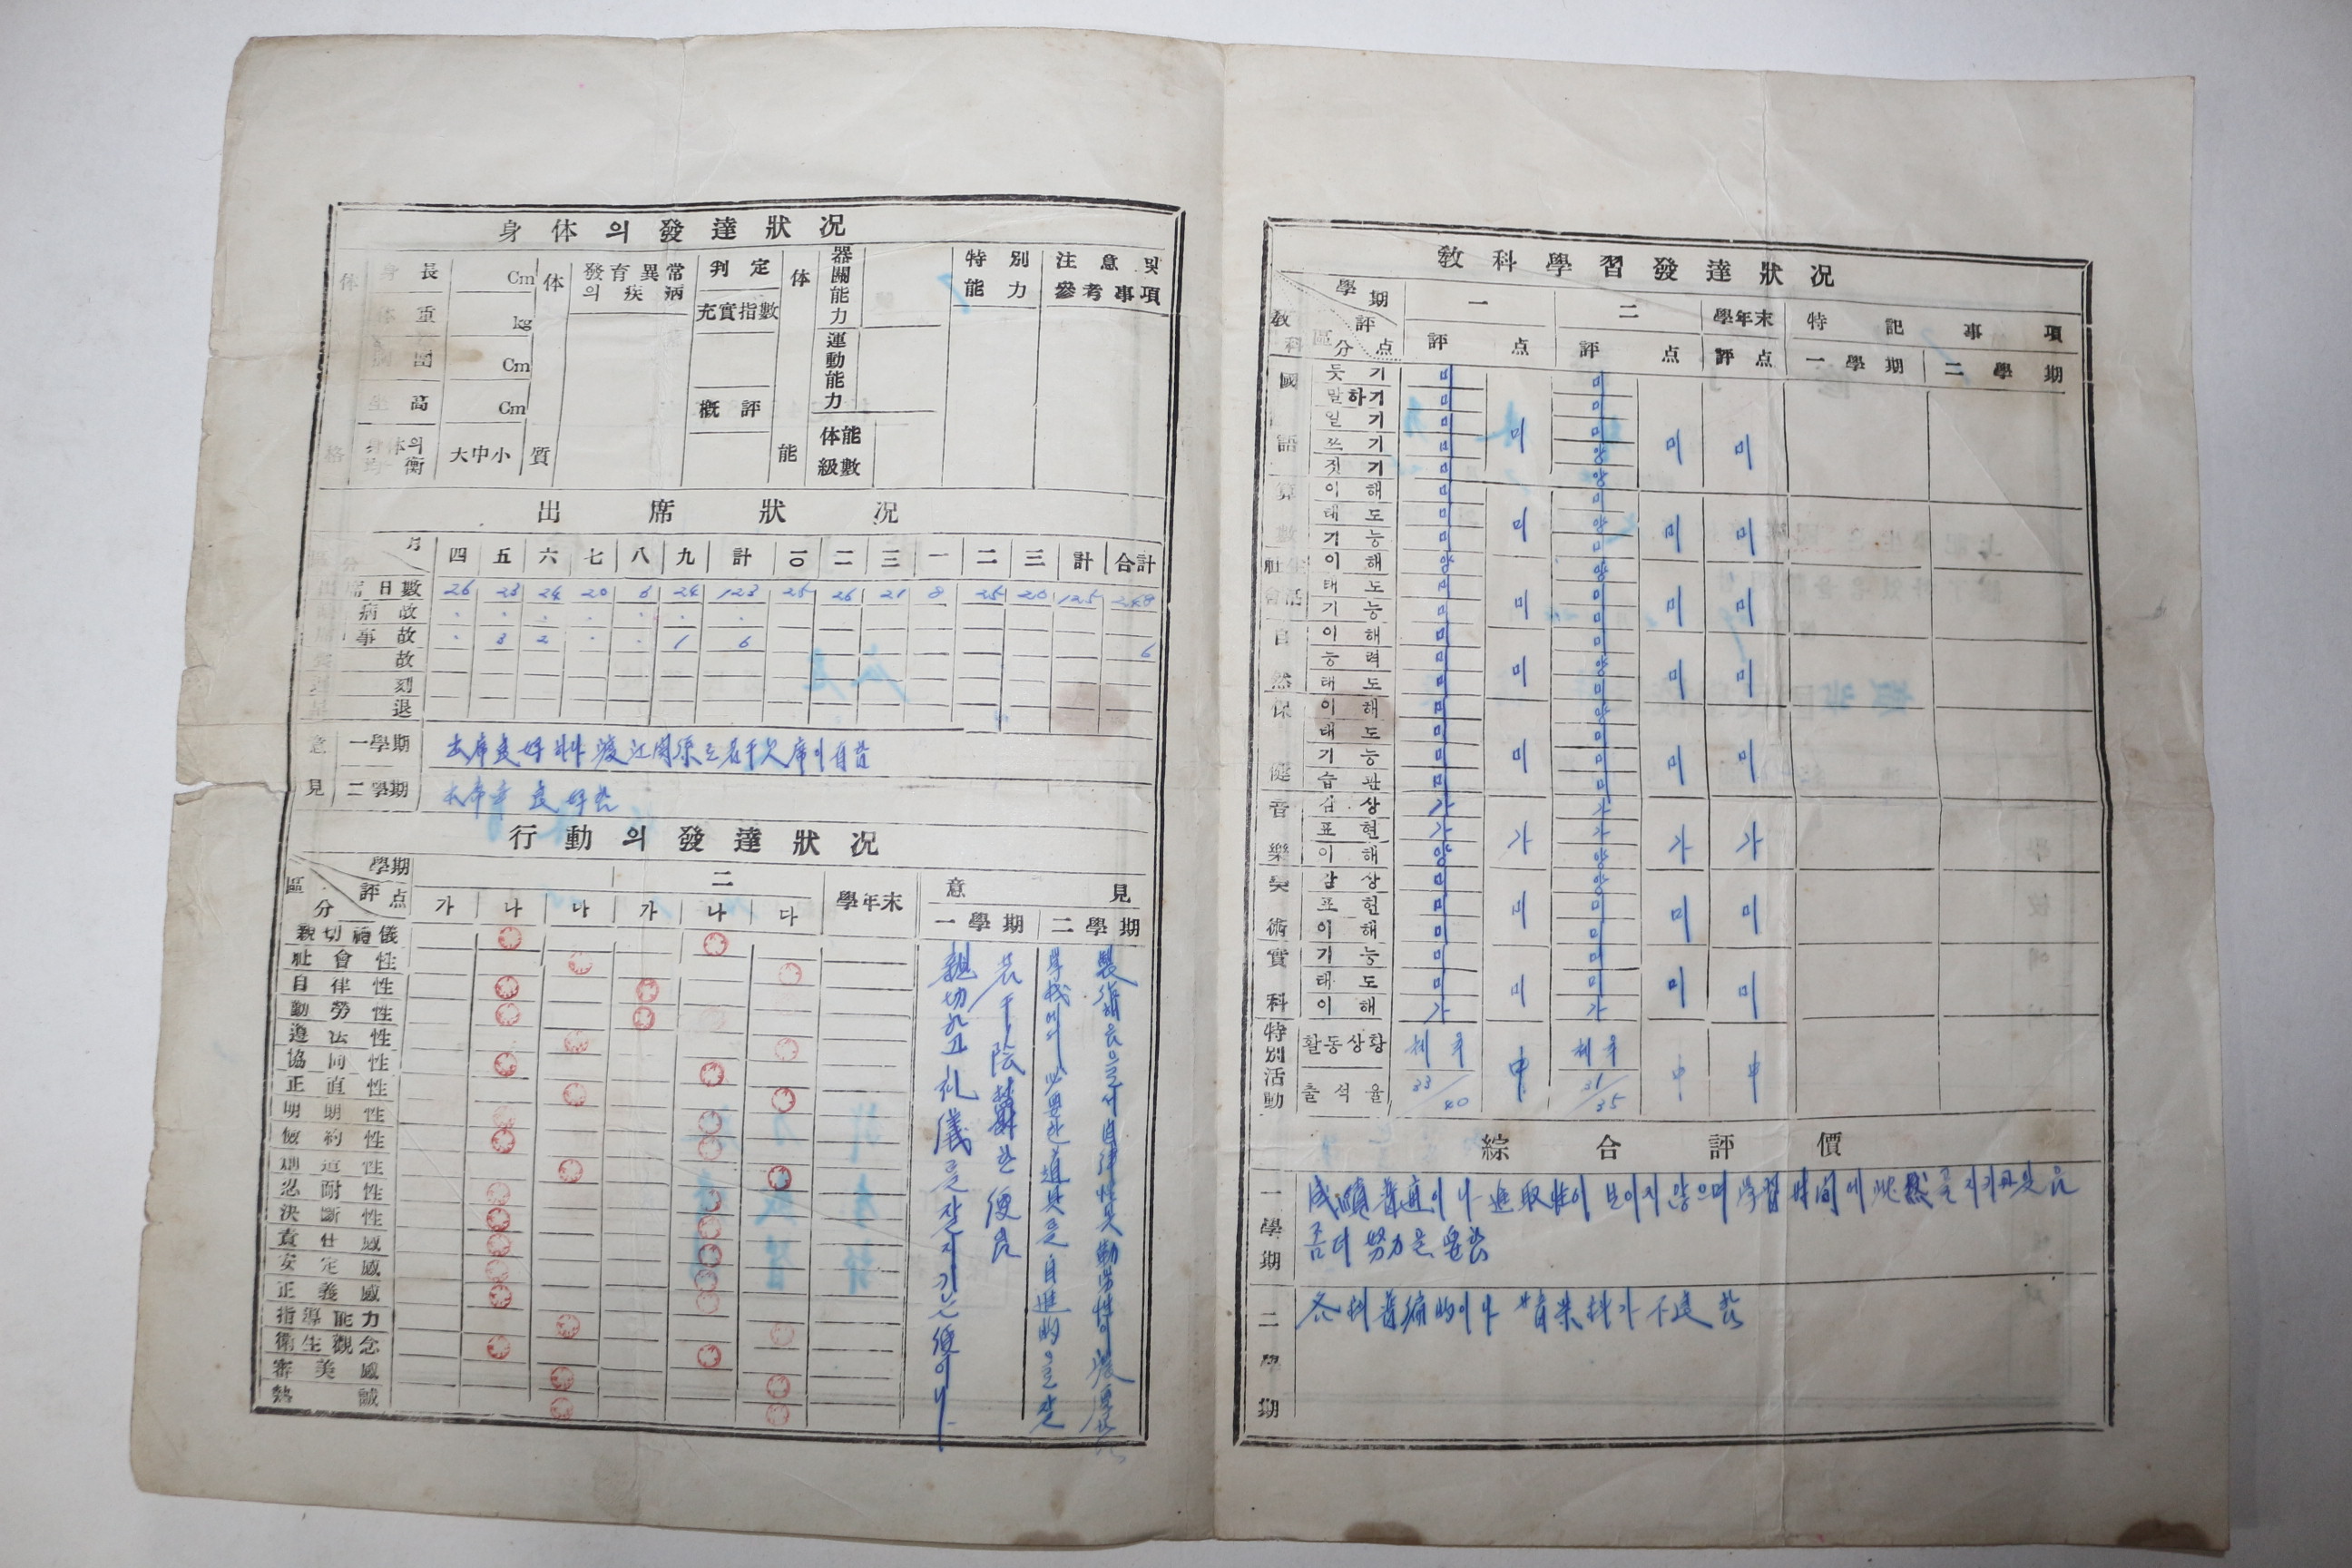 身体의發達狀况
体格
身長 Cm
体重 kg
胸圍 Cm
坐高 Cm
身体의均衡 大中小
体質
發育異常의疾病
判定
充實指數
概評
体能
器關能力
運動能力
体能級數
特別能力
注意및參考事項
出席狀况
區分 月 四 五 六 七 八 九 計 一〇 一一 一二 一 二 三 計 合計
出席日數 26 23 24 20 6 24 123 25 26 21 8 25 20 125 248
病故
事故 3 2 1 6 6
故
刻
退
意見
一學期 出席良好하나 渡江関係로 若干欠席이 有함
二學期 良好함
行動의發達狀况
區分 學期 評点 二 學年末 意見
가 나 나 가 나 다 一學期 二學期
親切禮儀
社會性
自律性
勤勞性
遵法性
協同性
正直性
明朗性
儉約性
創造性
忍耐性
決斷性
責任感
安定感
正義感
指導能力
衛生觀念
審美感
熱誠
親切하고 礼儀를 잘 지키는 便이나
若干 陰 한 便임
學校에서 必要한 道具를 自進的으로 잘
製作 自律性및 勤勞性이
教科學習發達狀况
教科 學期 評点 區分 一 二 學年末 特記事項
評 点 評 点 評点 一學期 二學期
國語
듯기 미 미
말하기 미 미
일기 미 미 미 미 미
쓰기 미 양
짓기 미 양
算數
이해 미 미
태도 미 미 양 미 미
기능 미 미
社會生活
이해 양 양
태도 미 미 미 미 미
기능 미 미
自然
이해 미 미
능력 미 미 양 미 미
태도 미 미
保健
이해 미 양
태도 미 미
기능 미 미 미 미 미
습관 미 미
音樂
감상 가 가
표현 가 가 가 가 가
이해 양 양
美術
감상 미 양
표현 미 미 미 미 미
이해 미 미
實科
기능 미 미
태도 미 미 미 미 미
이해 가 가
特別活動
활동상황 체육 中 체육 中 中
출석율 33/40 31/35
綜合評價
一學期
成績普通이나 進取性이 보이지 않으며 學習時間에 沈默을 지키고 있음
좀더 努力을 要함
二學期
各科 普編的이나 音樂科가 不良함